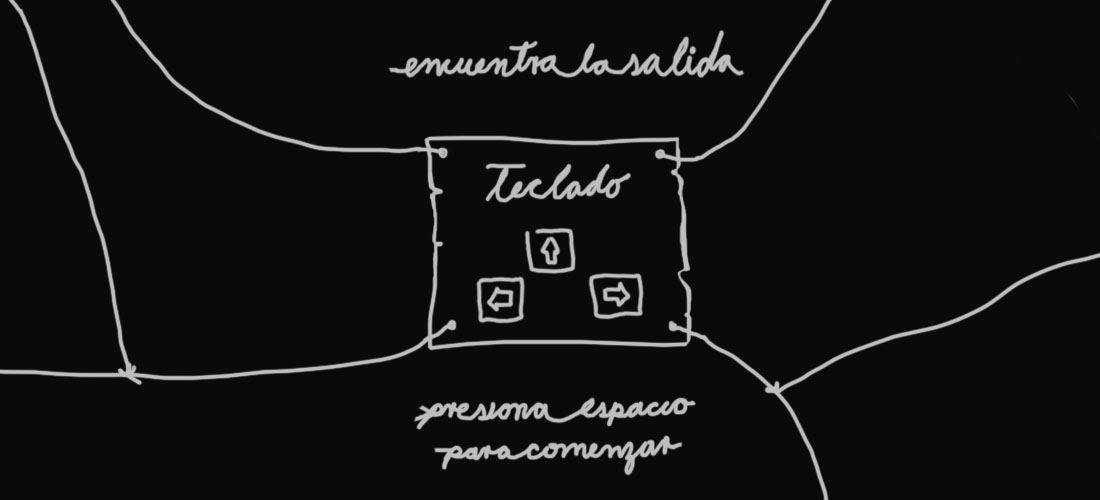 encuentra la salida
Teclado
presiona espacio
para comenzar